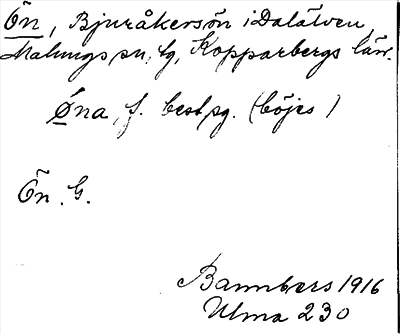 Ön, Bjuråkersön i Dalälven,
Malungs sn, tg, Kopparbergs län.
Øna, f. best. sg. (böjes)
Ön. G.
Bannbers 1916
Ulma 230